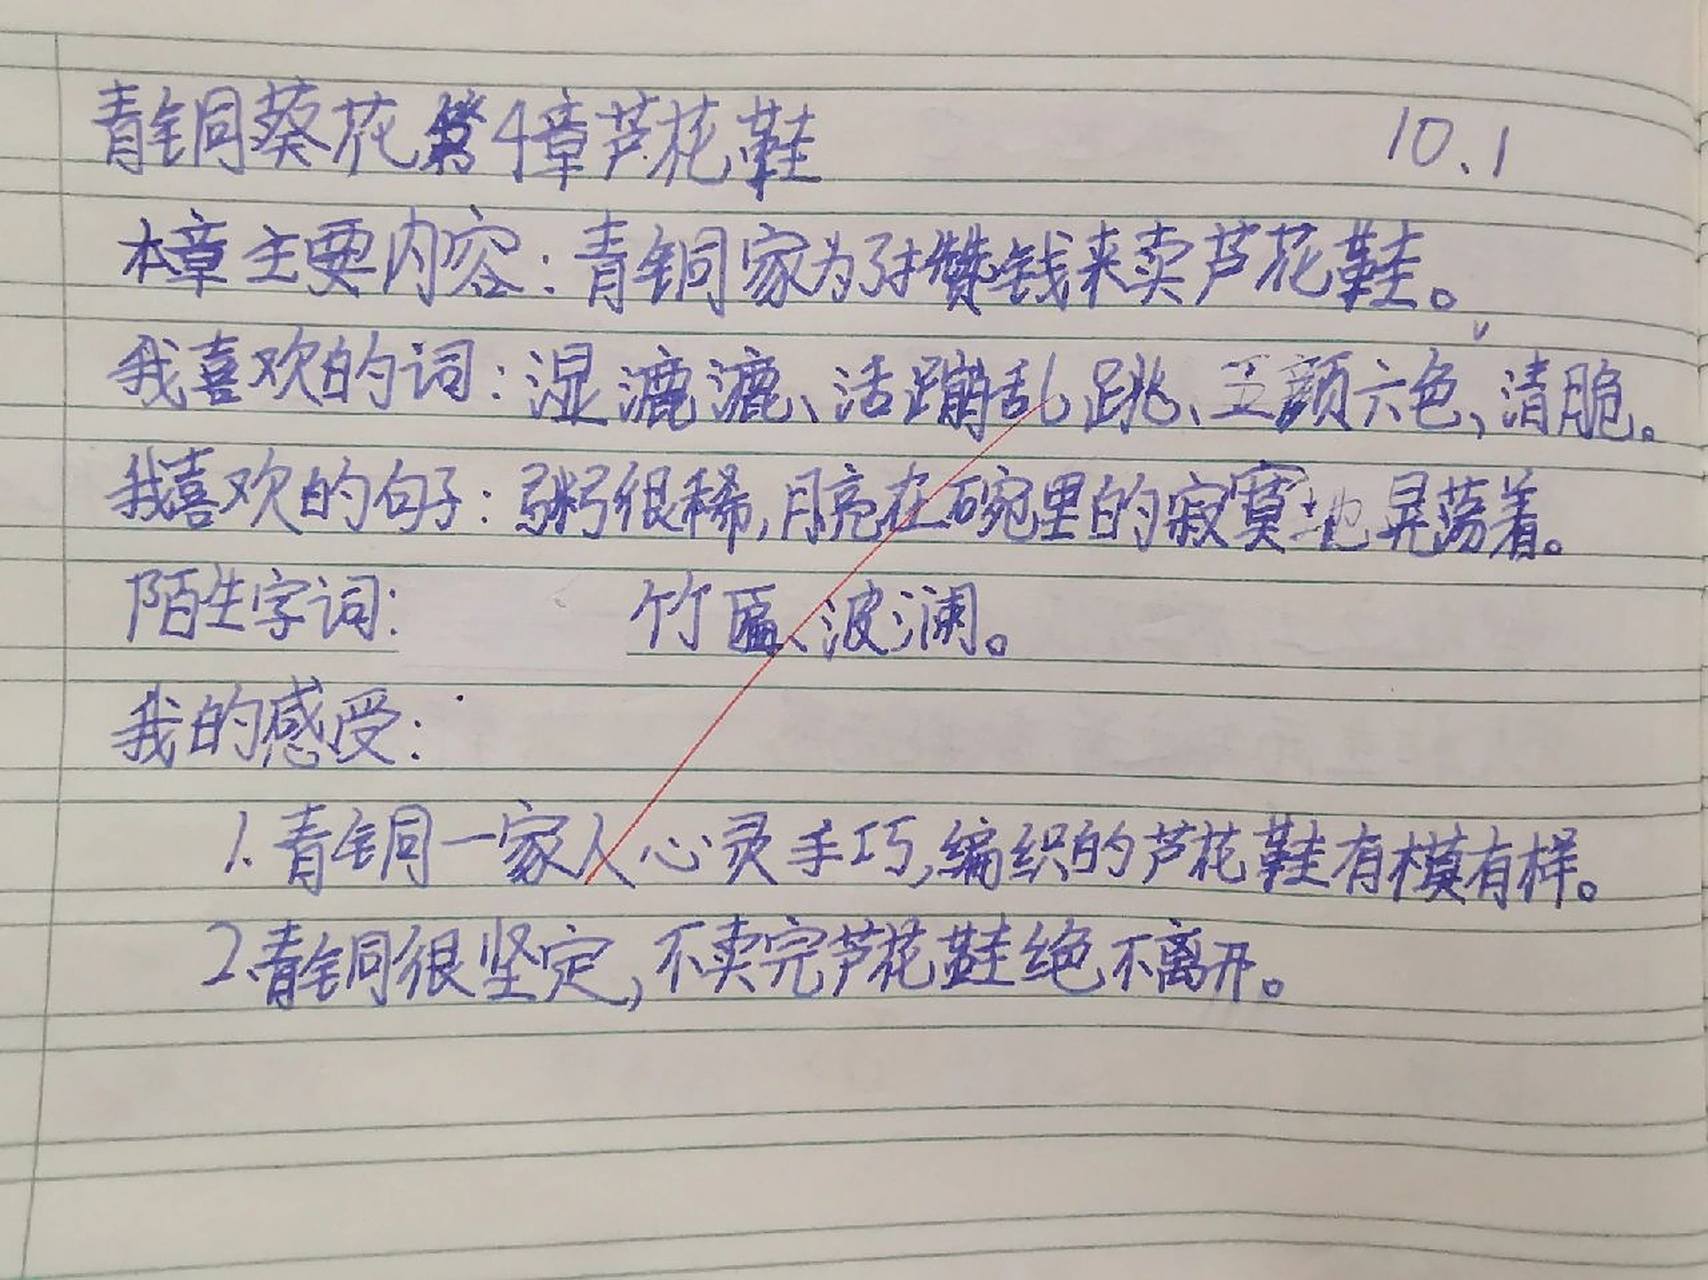 青铜葵花第4章芦花鞋 10.1
本章主要内容:青铜家为了攒钱来卖芦花鞋。
我喜欢的词:湿漉漉、活蹦乱跳、五颜六色、清脆。
我喜欢的句子:粥很稀,月亮在碗里的寂寞地晃荡着。
陌生字词: 竹匾、波澜。
我的感受:
1.青铜一家人心灵手巧,编织的芦花鞋有模有样。
2.青铜很坚定,不卖完芦花鞋绝不离开。